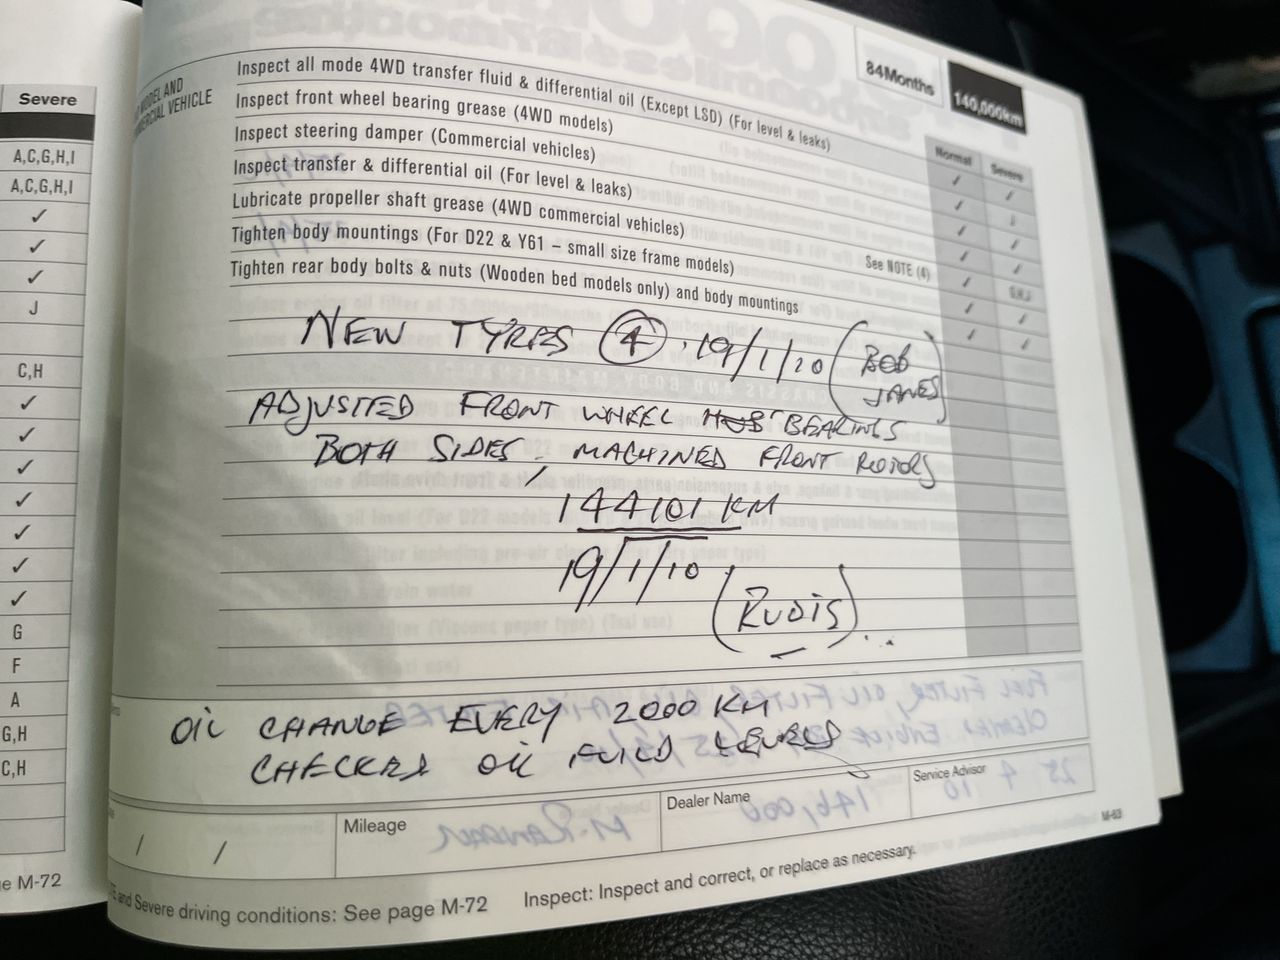 Severe
A,C,G,H,I
A,C,G,H,I
✓
✓
✓
J
C,H
✓
✓
✓
✓
✓
✓
✓
G
F
A
G,H
C,H
e M-72
MODEL AND
VEHICLE
84Months
140,000km
Normal Severe
Inspect all mode 4WD transfer fluid & differential oil (Except LSD) (For level & leaks) ✓ ✓
Inspect front wheel bearing grease (4WD models) ✓
Inspect steering damper (Commercial vehicles) ✓ ✓
Inspect transfer & differential oil (For level & leaks) ✓ ✓
Lubricate propeller shaft grease (4WD commercial vehicles) See NOTE (4) ✓
Tighten body mountings (For D22 & Y61 – small size frame models) ✓ ✓
Tighten rear body bolts & nuts (Wooden bed models only) and body mountings ✓ ✓
NEW TYRES (4) . 19/1/10 (BOB
JANES)
ADJUSTED FRONT WHEEL HUB BEARINGS
BOTH SIDES, MACHINED FRONT ROTORS
144101 KM
19/1/10
(RUDIS)...
OIL CHANGE EVERY 2000 KM
CHECKED OIL FUILD LEVELS
/ / Mileage Dealer Name Service Advisor
M-63
and Severe driving conditions: See page M-72 Inspect: Inspect and correct, or replace as necessary.